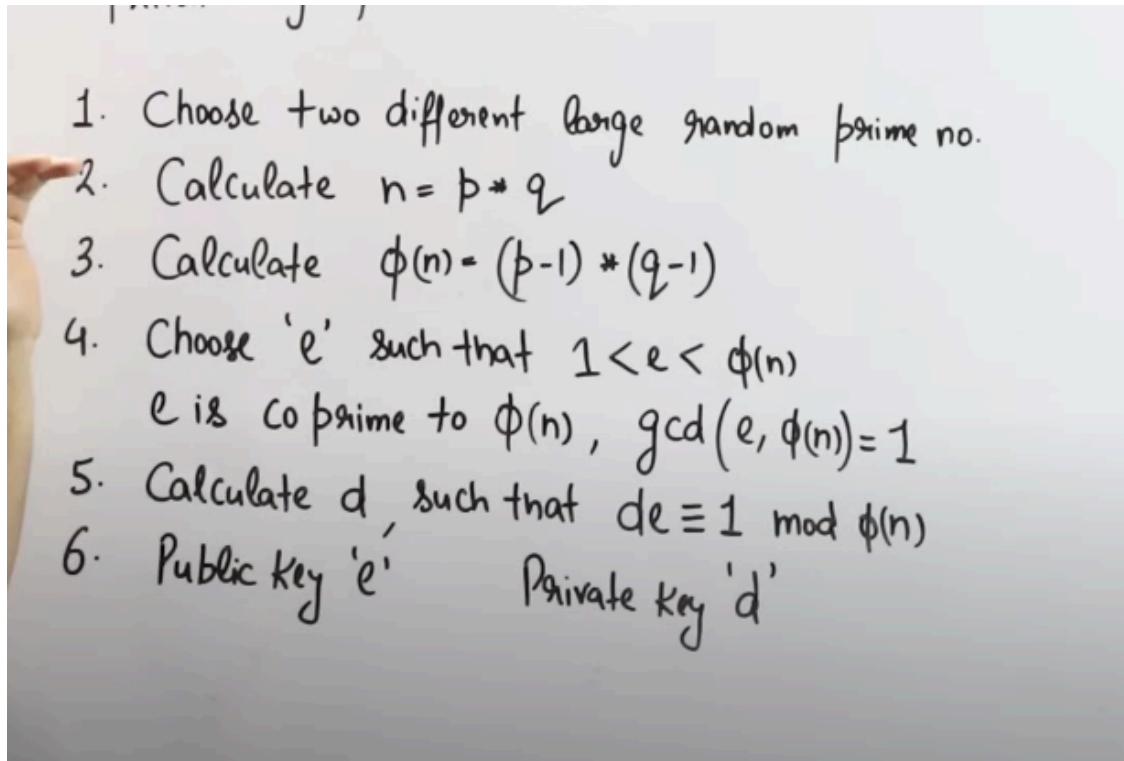 1. Choose two different large random prime no.
2. Calculate n = p * q
3. Calculate ϕ(n) = (p-1) * (q-1)
4. Choose 'e' such that 1 < e < ϕ(n)
e is co prime to ϕ(n), gcd(e, ϕ(n)) = 1
5. Calculate d, such that de ≡ 1 mod ϕ(n)
6. Public key 'e' Private key 'd'